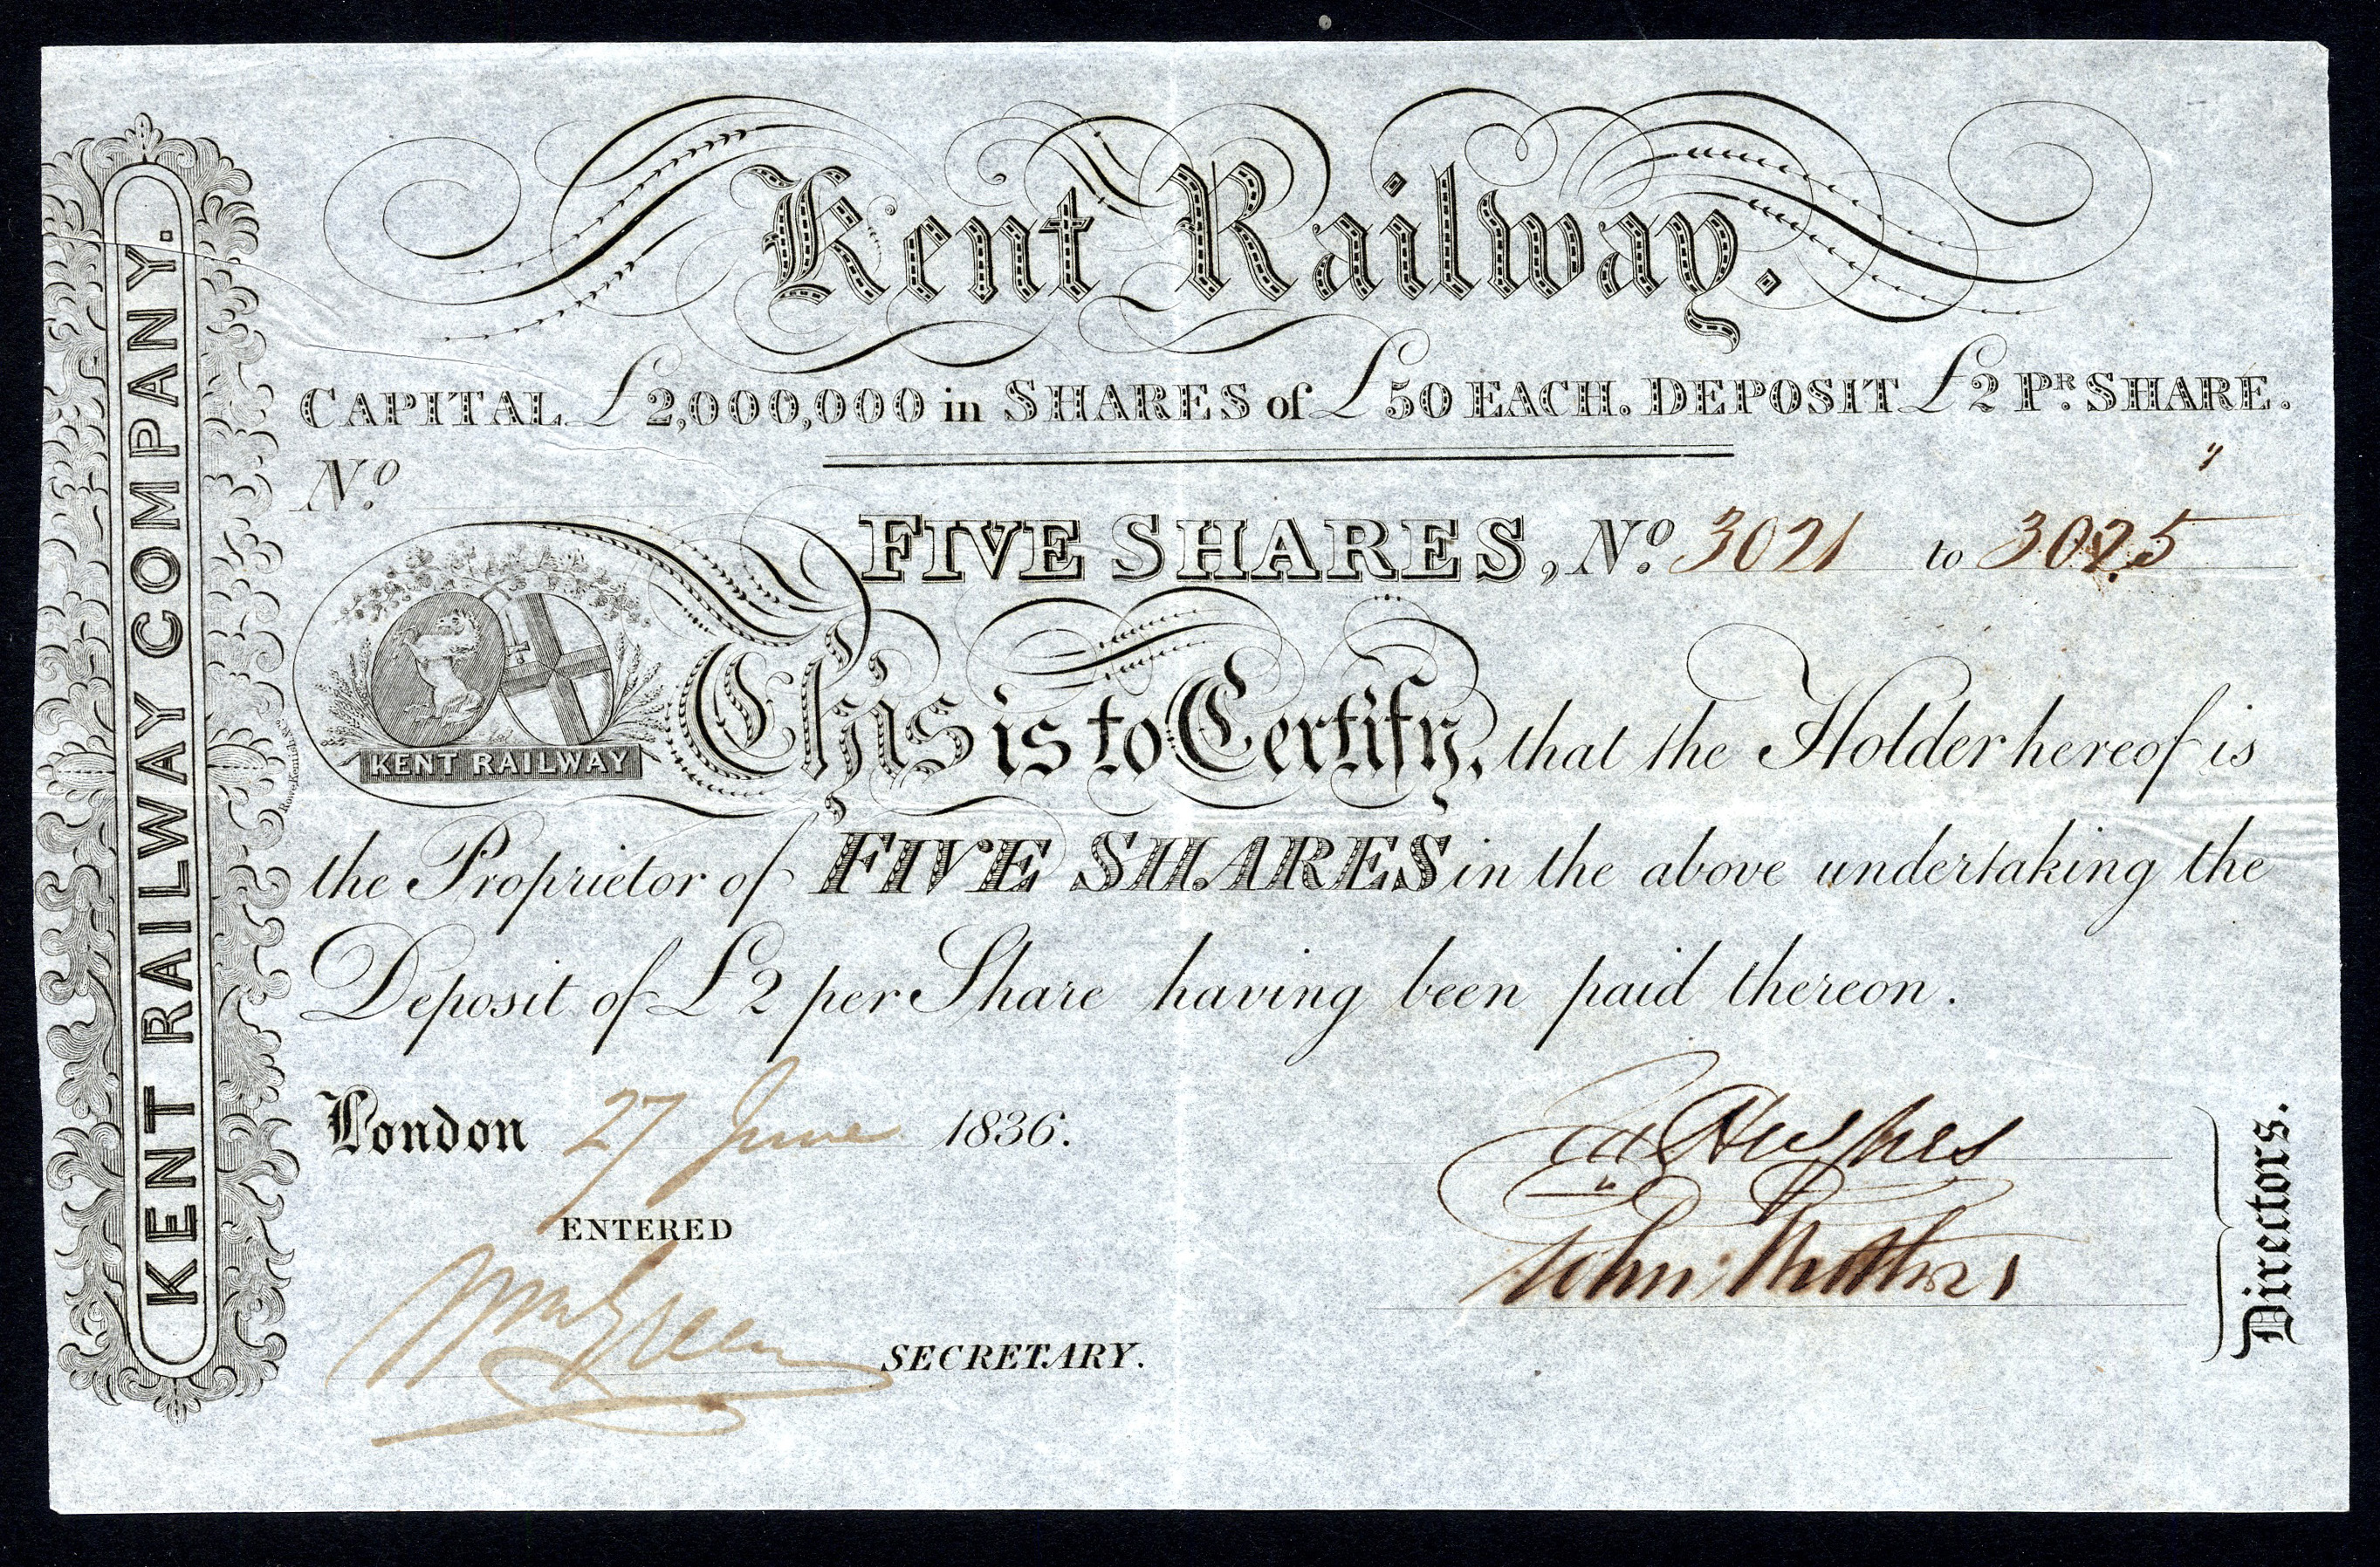 KENT RAILWAY COMPANY.
Kent Railway.
CAPITAL £2,000,000 in SHARES of £50 EACH. DEPOSIT £2 PR. SHARE.
No.
FIVE SHARES, No. 3021 to 3025
KENT RAILWAY
This is to Certify, that the Holder hereof is
the Proprietor of FIVE SHARES in the above undertaking the
Deposit of £2 per Share having been paid thereon.
London 27 June 1836.
Hughes
ENTERED
John
Wm Green SECRETARY.
Directors.